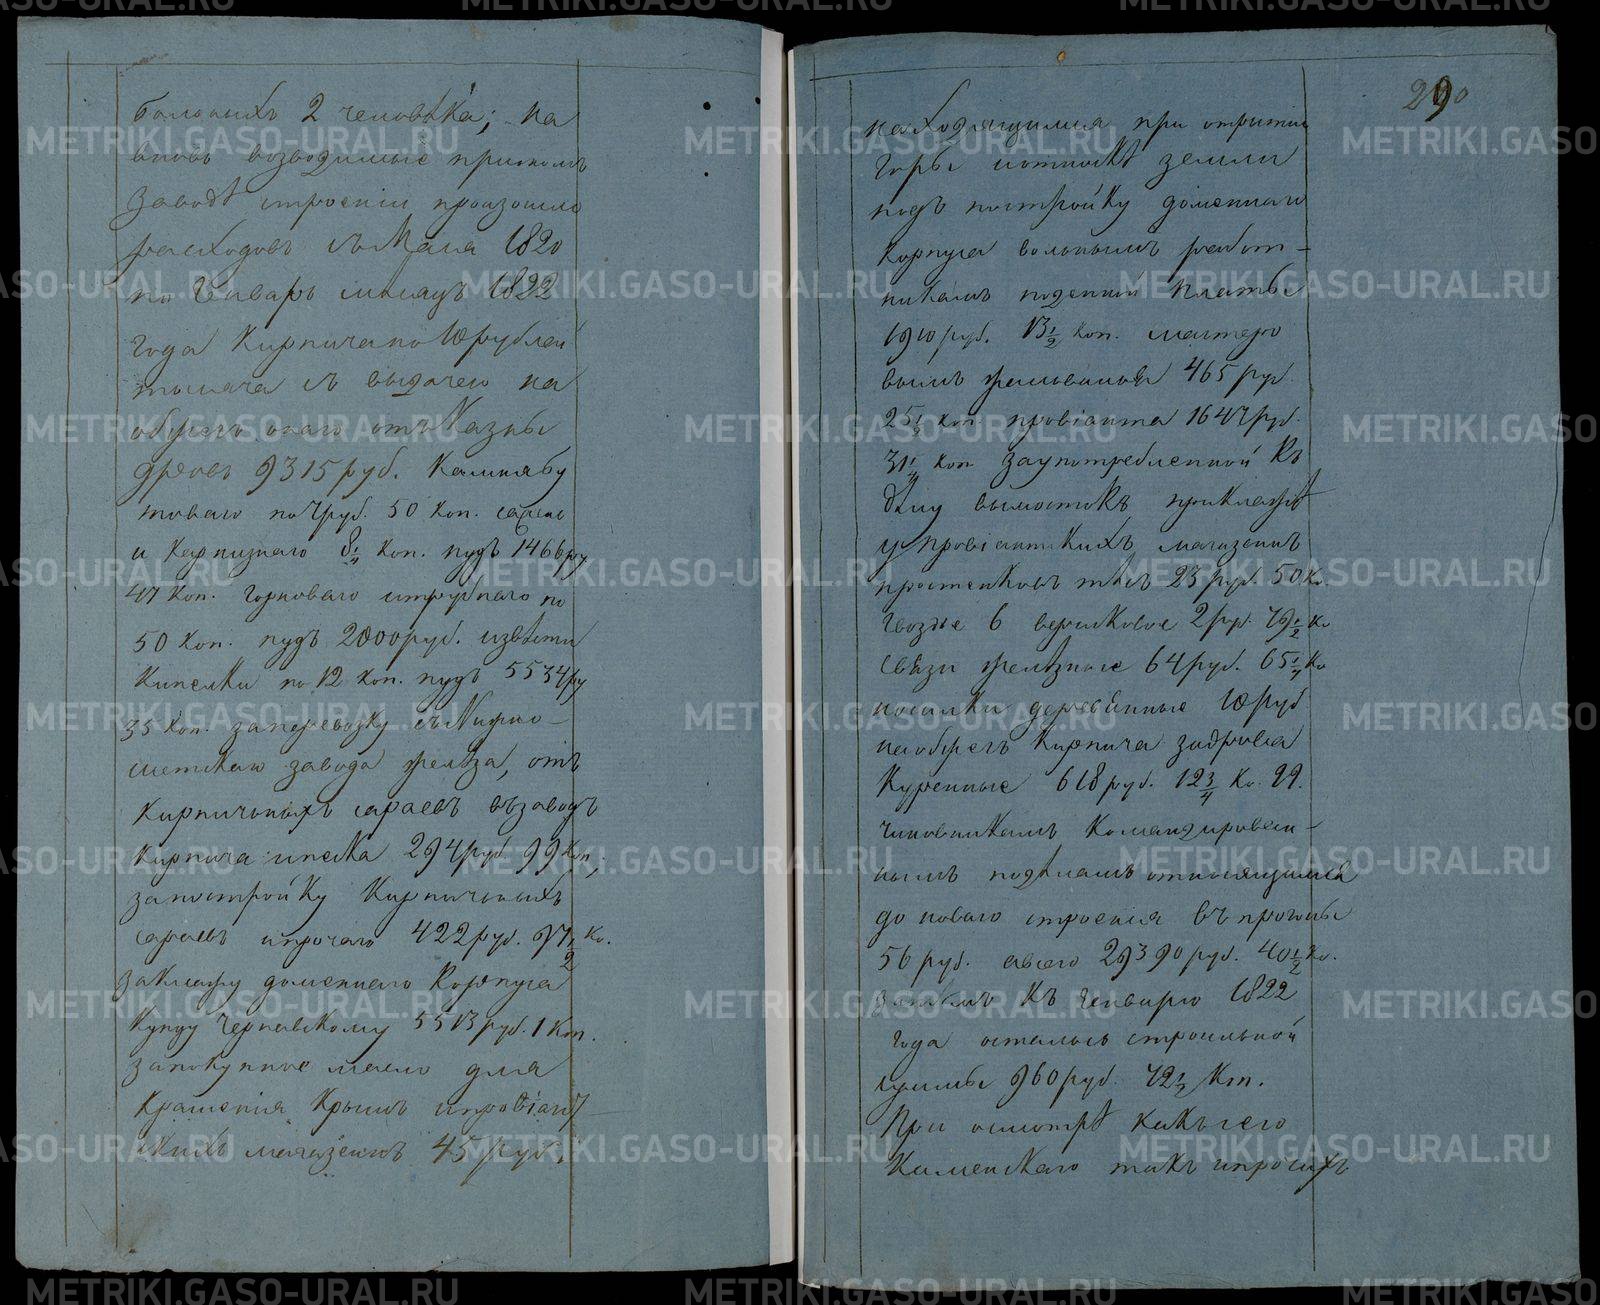 больныхъ 2 человѣка; на
вновь возводимые при томъ
заводѣ строенiи произошло
расходовъ съ Мая 1820
по Генварь мѣсяцъ 1822
года Кирпича по 10 рублей
тысяча съ выдачею на
обжегъ онаго отъ Казны
дровъ 9315 руб. Камня бу
товаго по 7 руб. 50 коп. сажень
и карнизнаго 8¼ коп. пудъ 1466 ру
47 коп. горноваго и трубнаго по
50 коп. пудъ 2000 руб. извѣсти
Кипелки по 12 коп. пудъ 5534 ру
35 коп. за перевозку съ Нижно-
исетскаго завода желѣза, отъ
Кирпичныхъ сараевъ въ заводъ
Кирпича и песка 294 руб 99 коп,
за постройку Кирпичныхъ
сараевъ и прочаго 422 руб. 97½ ко.
за кладку доменнаго Корпуса
Купцу Чернавскому 5513 руб. 1 коп.
за покупное масло для
Крашенiя Крышъ и провiант
скихъ магазеиновъ 45 руб.
290
находящимся при отрытiи
горы и отвозкѣ земли
подъ постройку доменнаго
Корпуса вольнымъ работ-
никамъ поденной платы
1910 руб. 13½ коп. мастеро
вымъ жалованья 465 руб.
25½ коп провiанта 1647 руб.
31¼ коп за употребленной въ
дѣлу
у провiантскихъ магазеинъ
простенковъ тёсъ 23 руб. 50 ко.
гвозье 6 вершковое 2 руб. 79½ ко
связи желѣзные 64 руб. 65¼ ко
носилки деревянные 10 руб
на обжегъ Кирпича за дрова
Куренные 618 руб. 12¾ ко. 99.
чиновникамъ Командирован-
нымъ по дѣламъ относящимся
до новаго строенiя въ прогоны
56 руб. а всего 29390 руб. 40½ ко.
затѣмъ къ Генварю 1822
года осталось строильной
суммы 960 руб. 72½ Коп.
При осмотрѣ какъ сего
Каменскаго такъ и прочихъ